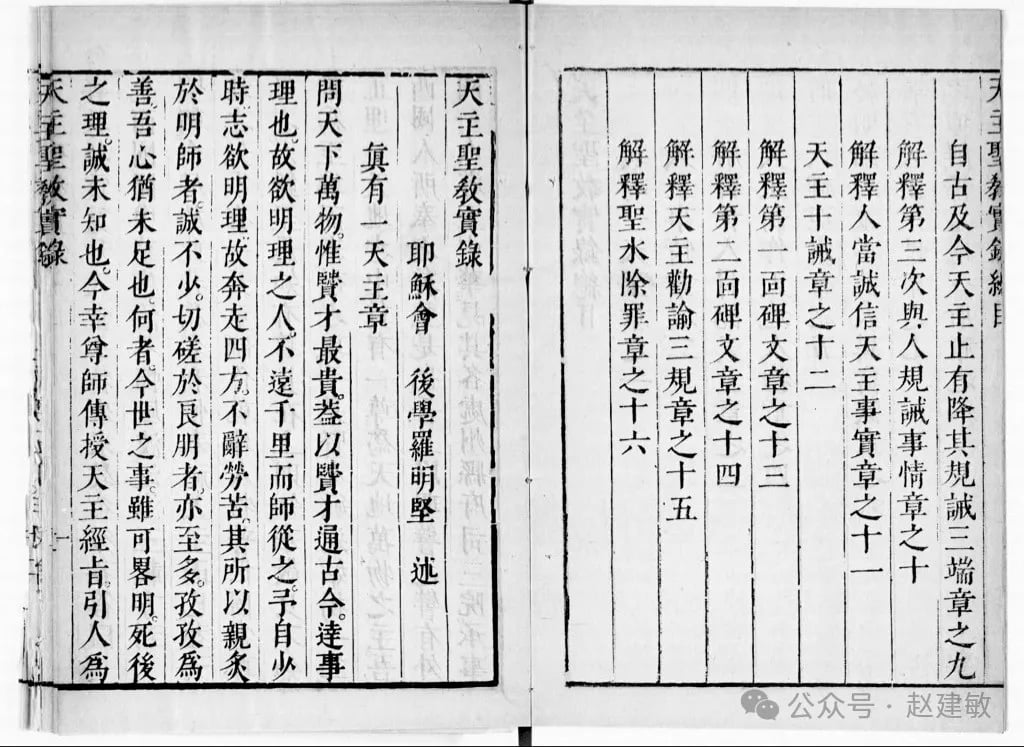 天主聖教實錄總目
自古及今天主止有降其規誡三端章之九
解釋第三次與人規誡事情章之十
解釋人當誠信天主事實章之十一
天主十誡章之十二
解釋第一面碑文章之十三
解釋第二面碑文章之十四
解釋天主勸諭三規章之十五
解釋聖水除罪章之十六
天主聖教實錄
耶穌會 後學羅明堅 述
眞有一天主章
問天下萬物。惟賢才最貴。蓋以賢才通古今。達事
理也。故欲明理之人。不遠千里而師從之。予自少
時志欲明理故奔走四方。不辭勞苦。其所以親炙
於明師者。誠不少。切磋於良朋者。亦至多。孜孜爲
善吾心猶未足也。何者。今世之事。雖可畧明。死後
之理。誠未知也。今幸尊師傳授天主經旨。引人爲
天主聖教實錄
一
公众号 · 赵建敏